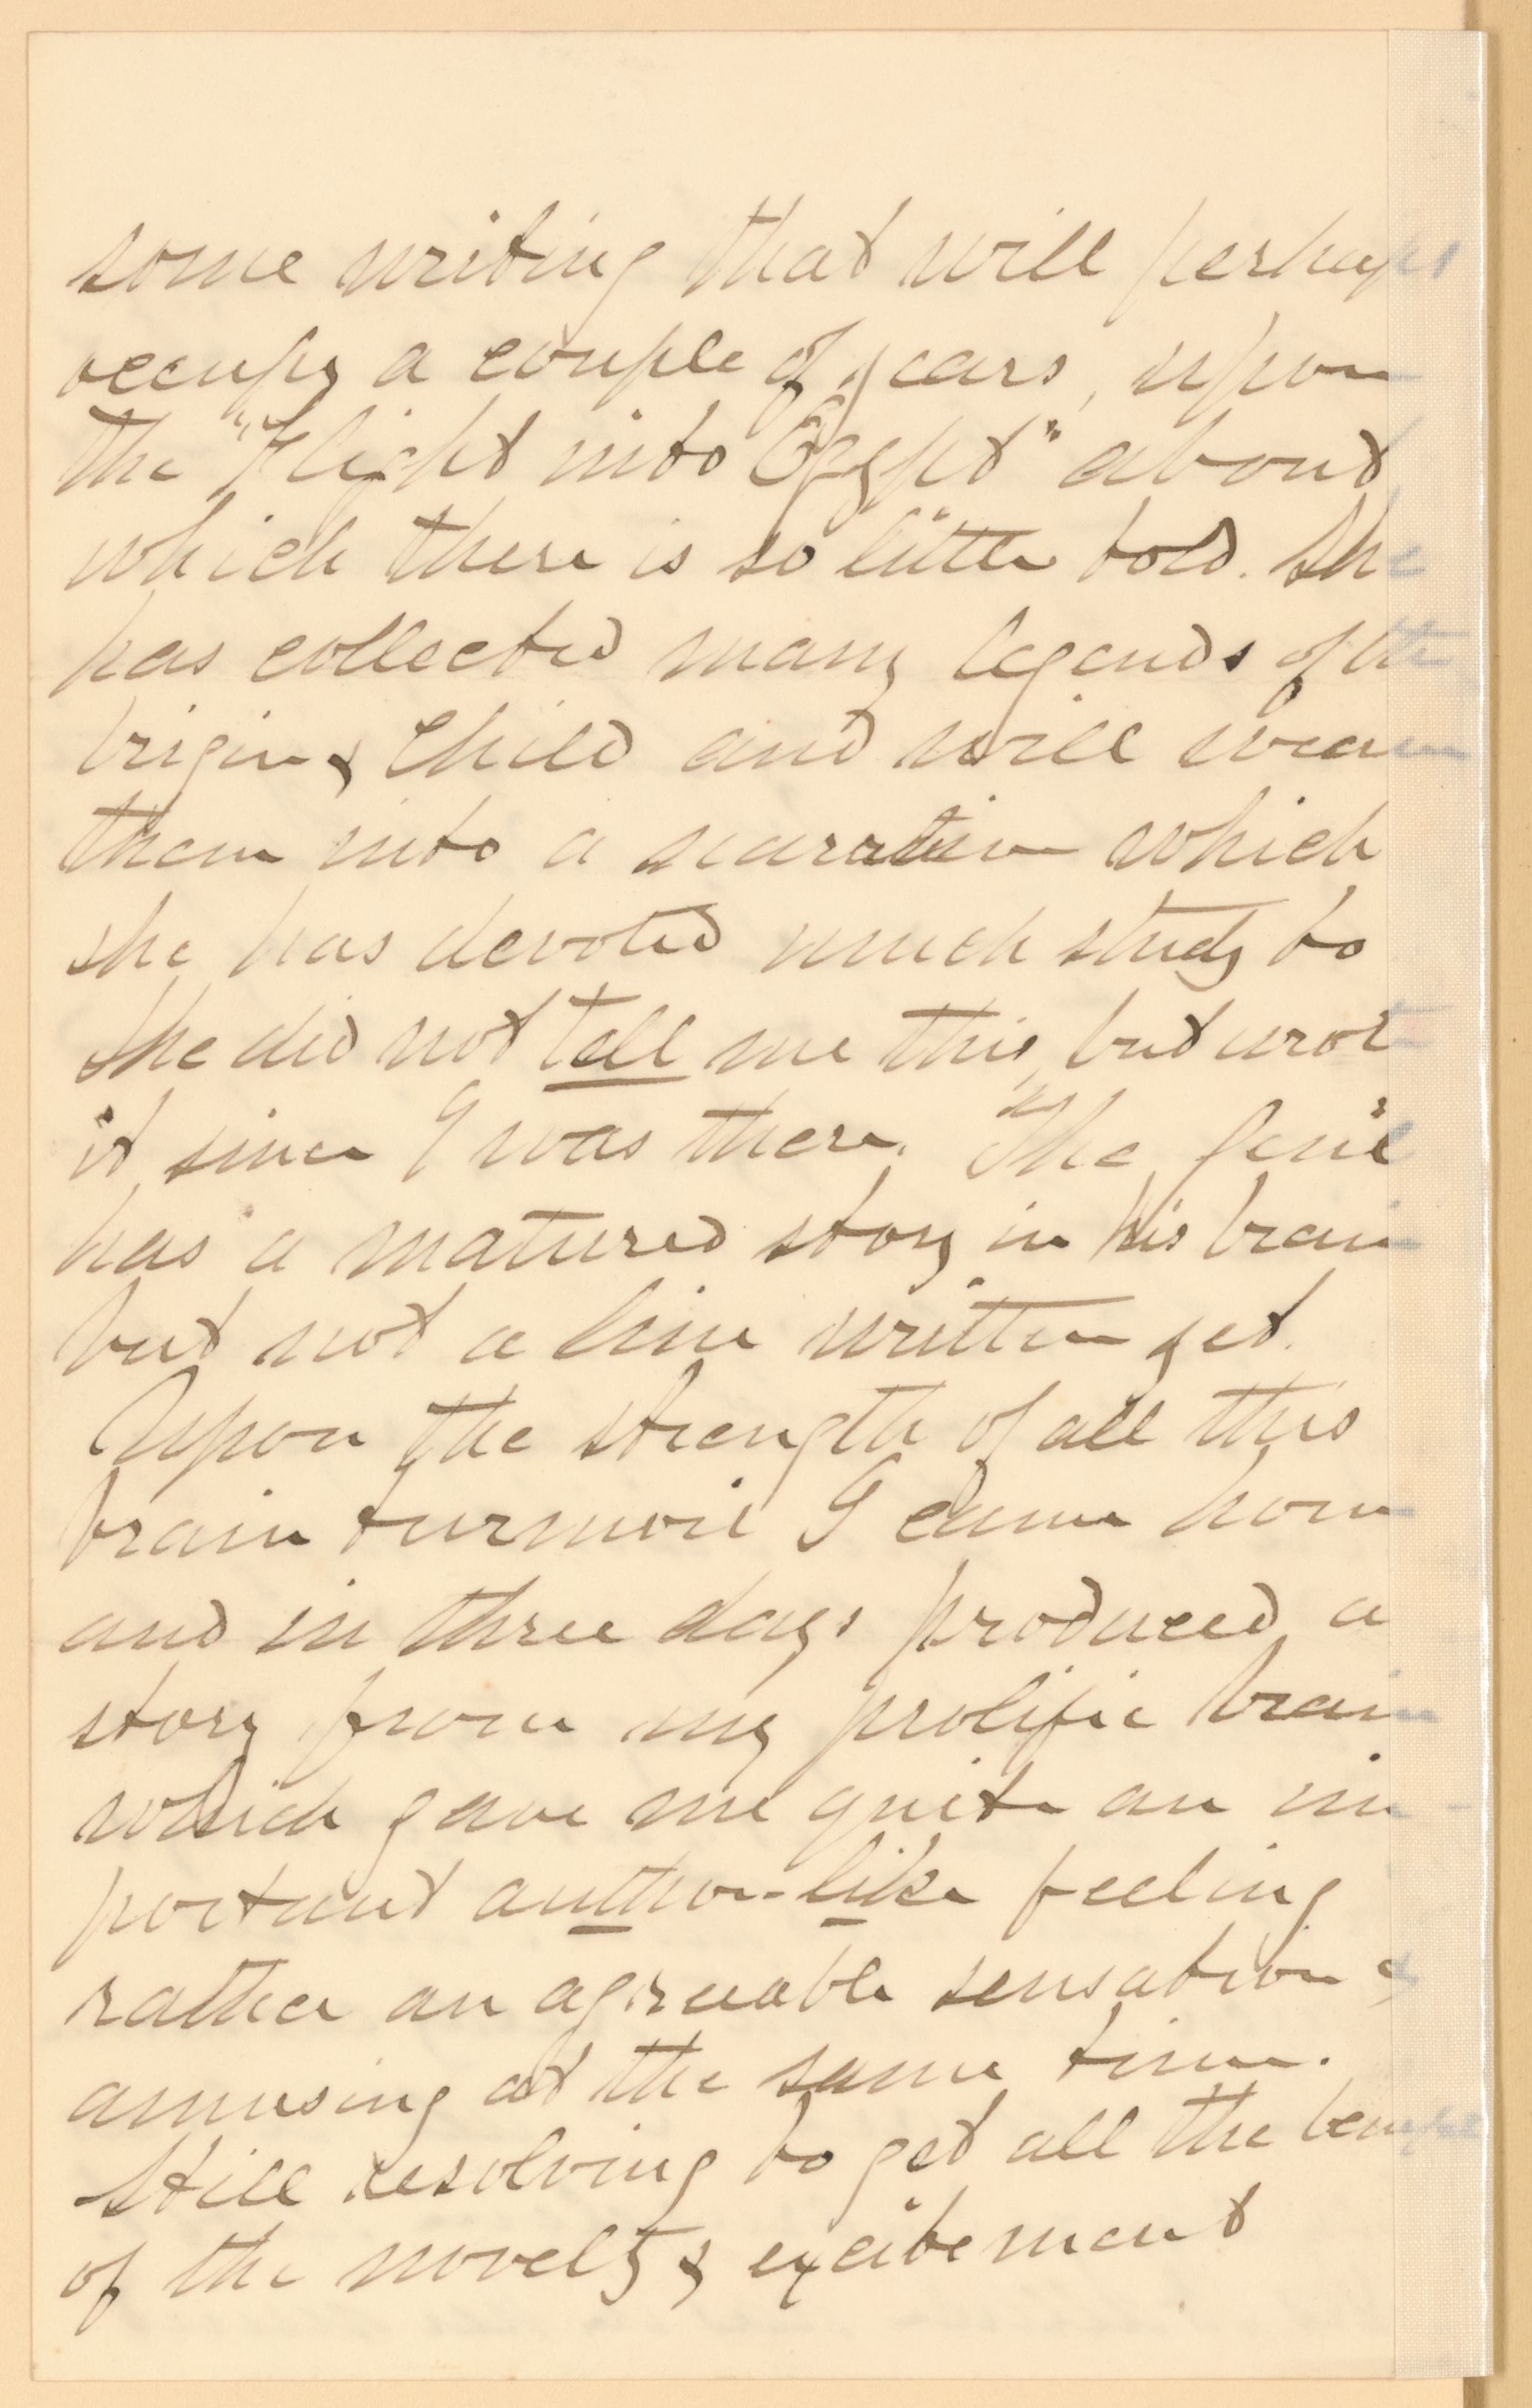 some writing that will perhaps
occupy a couple of years, upon
the "Flight into Egypt" about
which there is so little told. She
has collected many legends of the
Virgin & Child and will weave
them into a narrative which
she has devoted much study to
She did not tell me this, but wrote
it since I was there. The Gen'l
has a matured story in his brain
but not a line written yet.
Upon the strength of all this
brain turmoil I came home
and in three days produced a
story from my prolific brain
which gave me quite an im-
portant author-like feeling
rather an agreeable sensation &
amusing at the same time.
Still resolving to get all the benefit
of the novelty & excitement